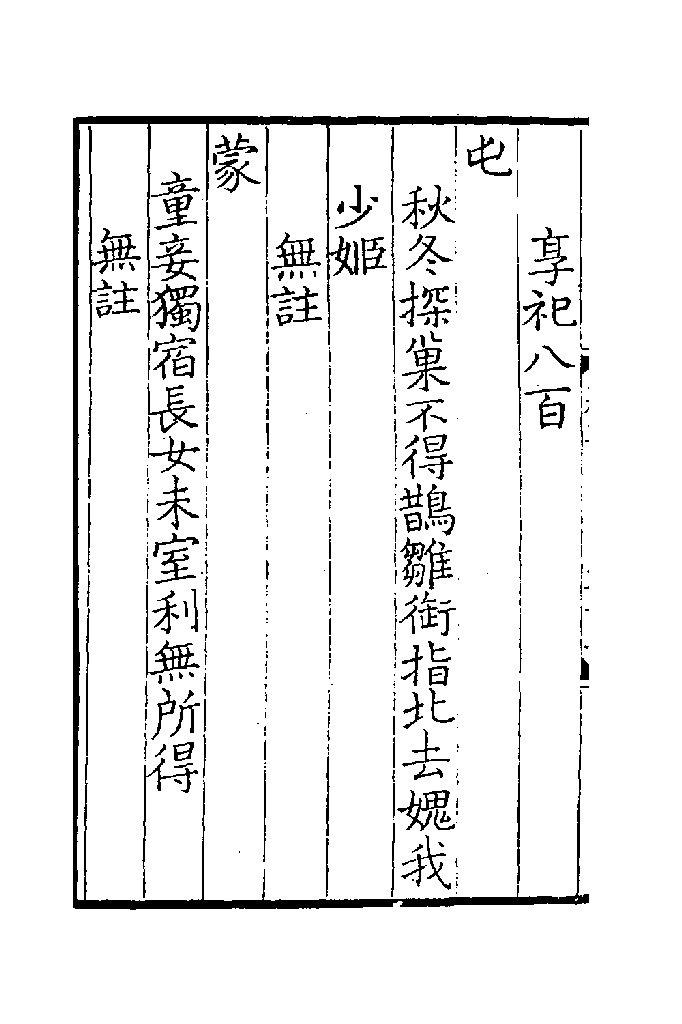 享祀八百
屯
秋冬探巢不得鵲雛銜指北去媿我
少姬
無註
蒙
童妾獨宿長女未室利無所得
無註